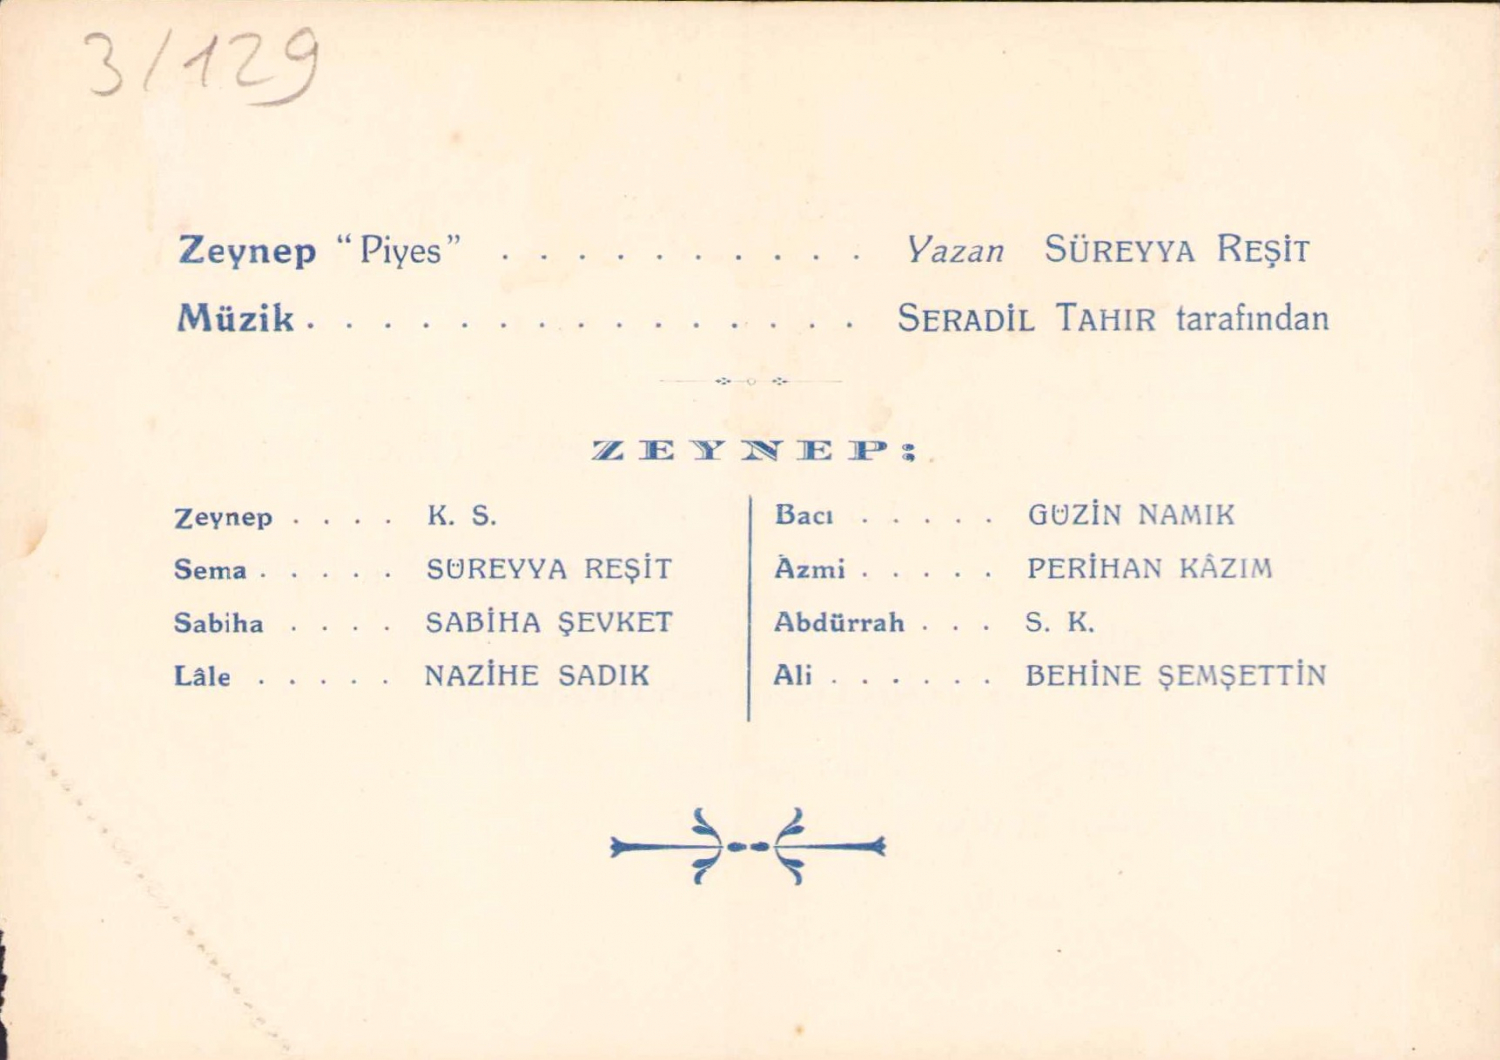 3/129
Zeynep “Piyes” . . . . . . . . . . . Yazan SÜREYYA REŞİT
Müzik . . . . . . . . . . . . . . . SERADİL TAHIR tarafından
ZEYNEP:
Zeynep . . . . K. S.
Sema . . . . . SÜREYYA REŞİT
Sabiha . . . . SABİHA ŞEVKET
Lâle . . . . . NAZİHE SADIK
Bacı . . . . . GÜZİN NAMIK
Azmi . . . . . PERİHAN KÂZIM
Abdürrah . . . S. K.
Ali . . . . . . BEHİNE ŞEMŞETTİN